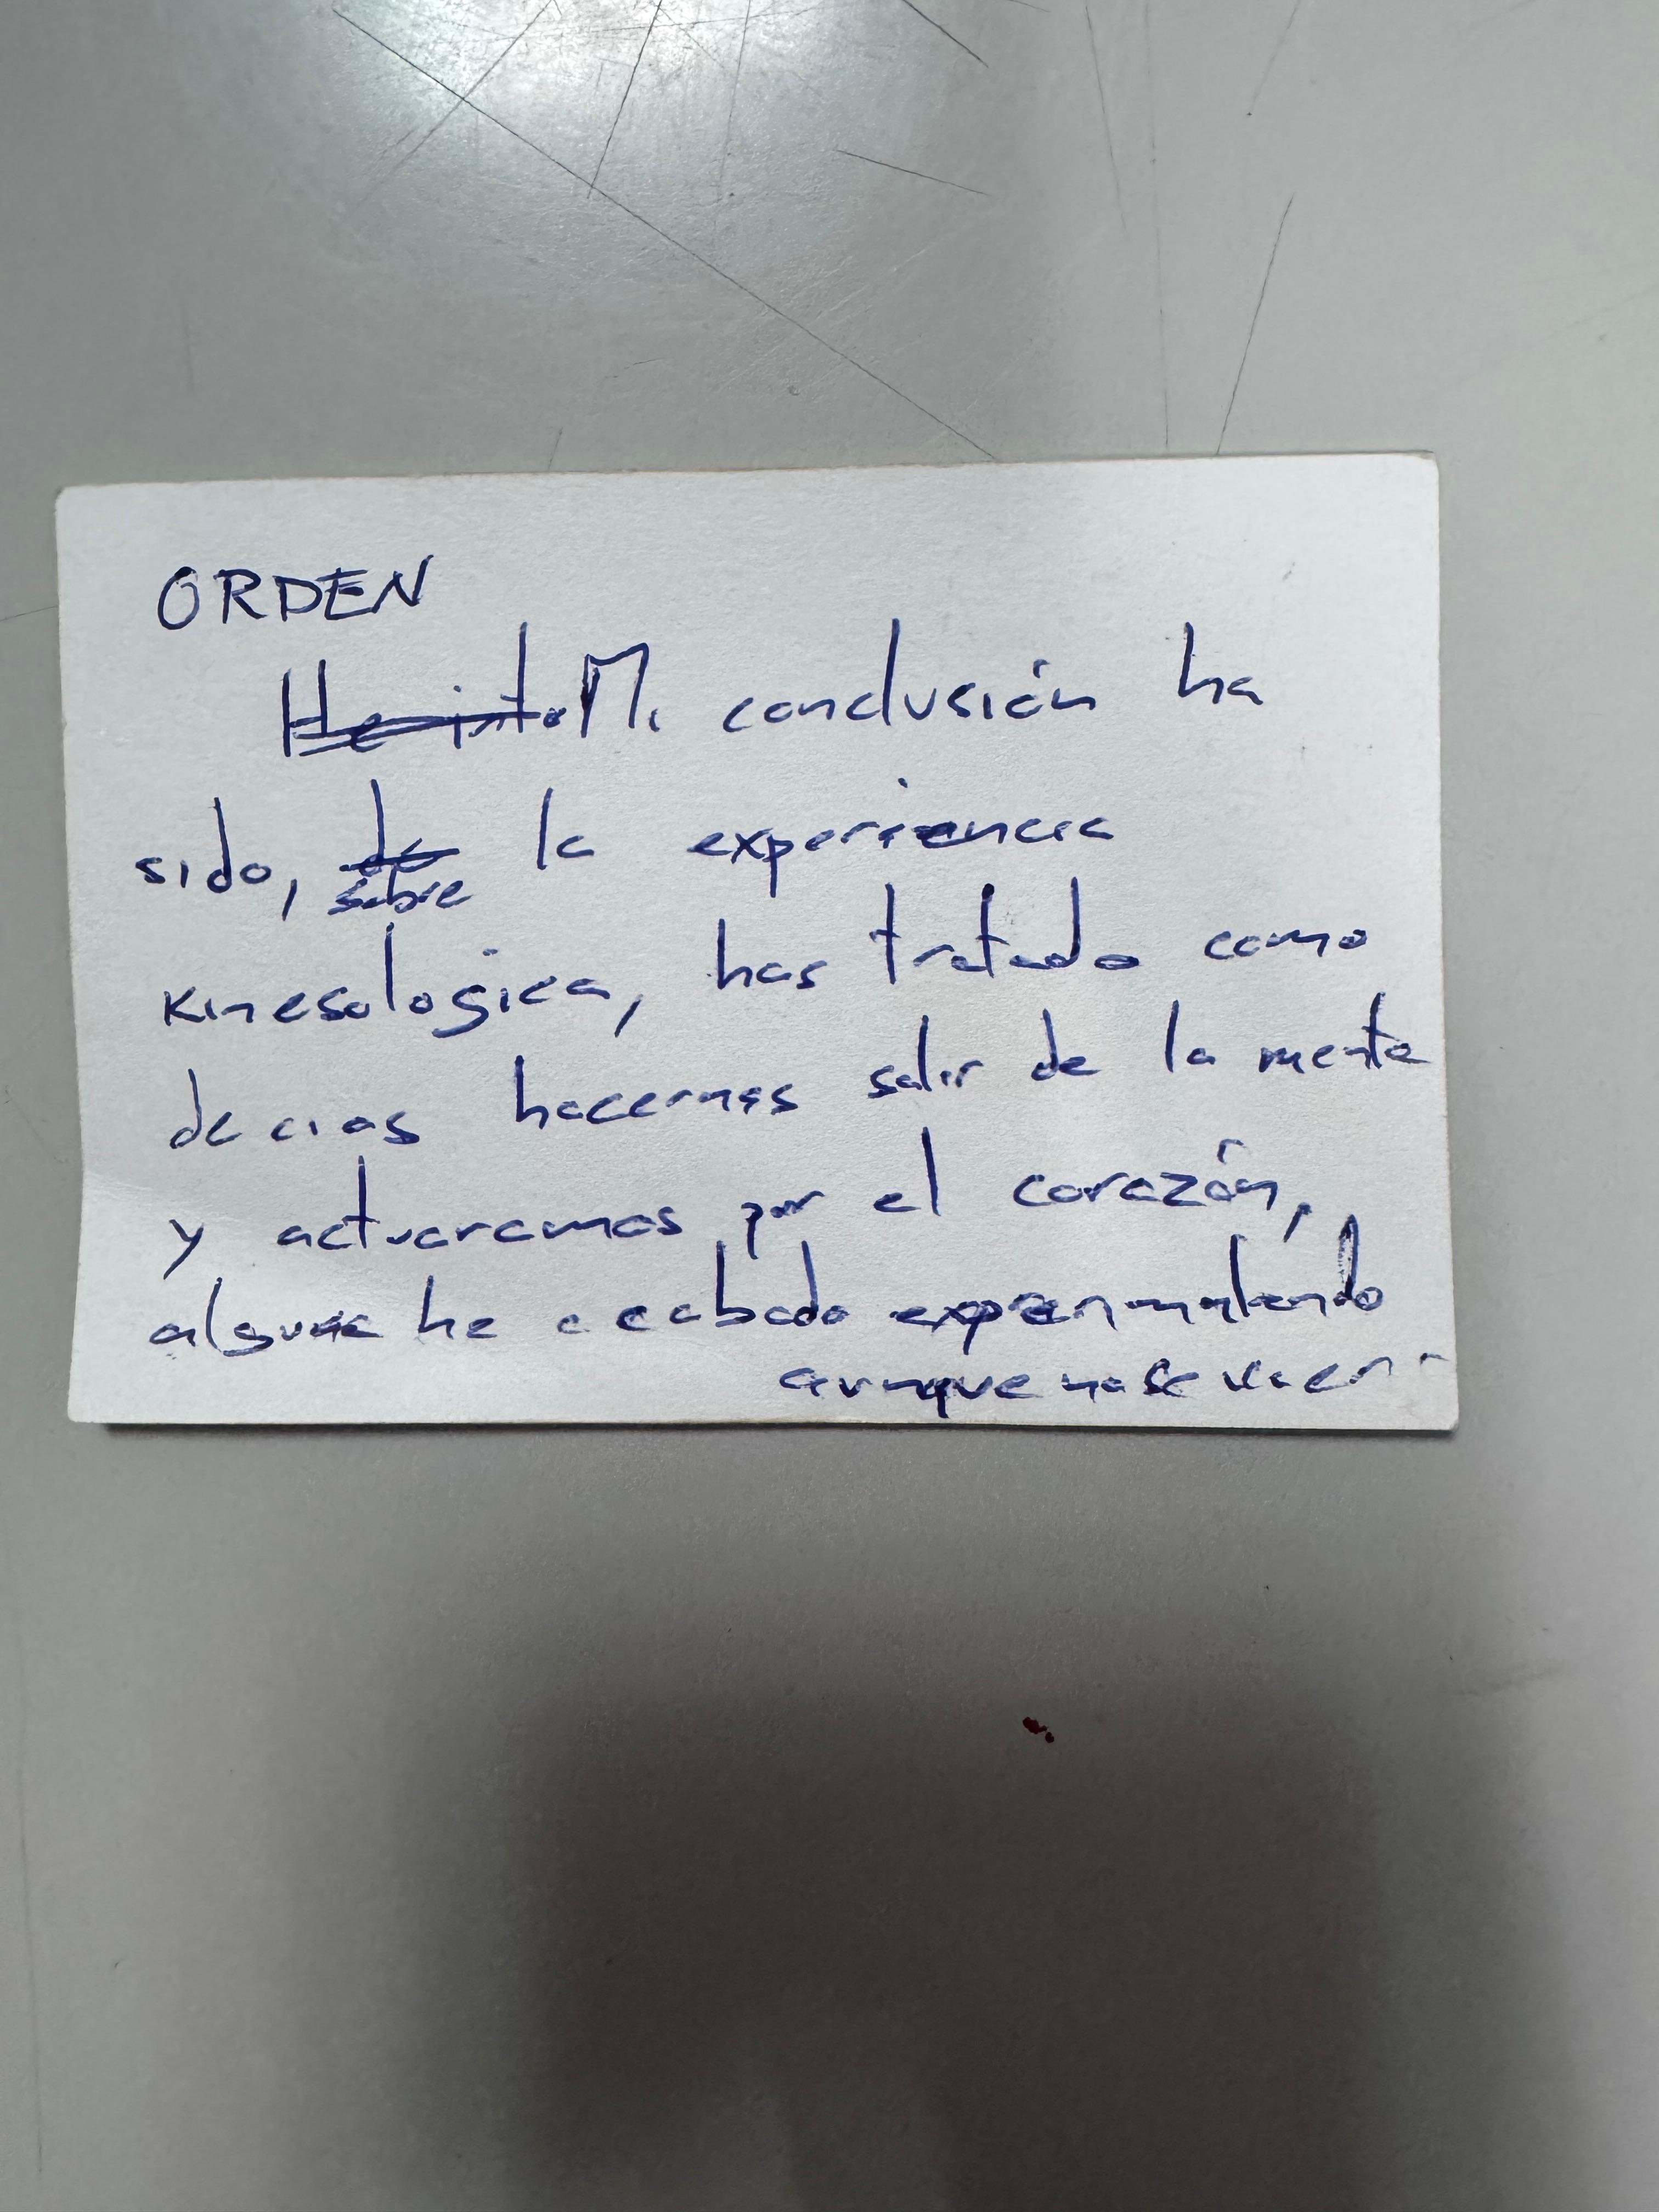 ORDEN
Mi conclusión ha
sido, sobre la experiencia
kinesologica, has tratado como
decias hacernos salir de la mente
y actuaramos por el corazón,
alguna he acabado experimentando
aunque no se